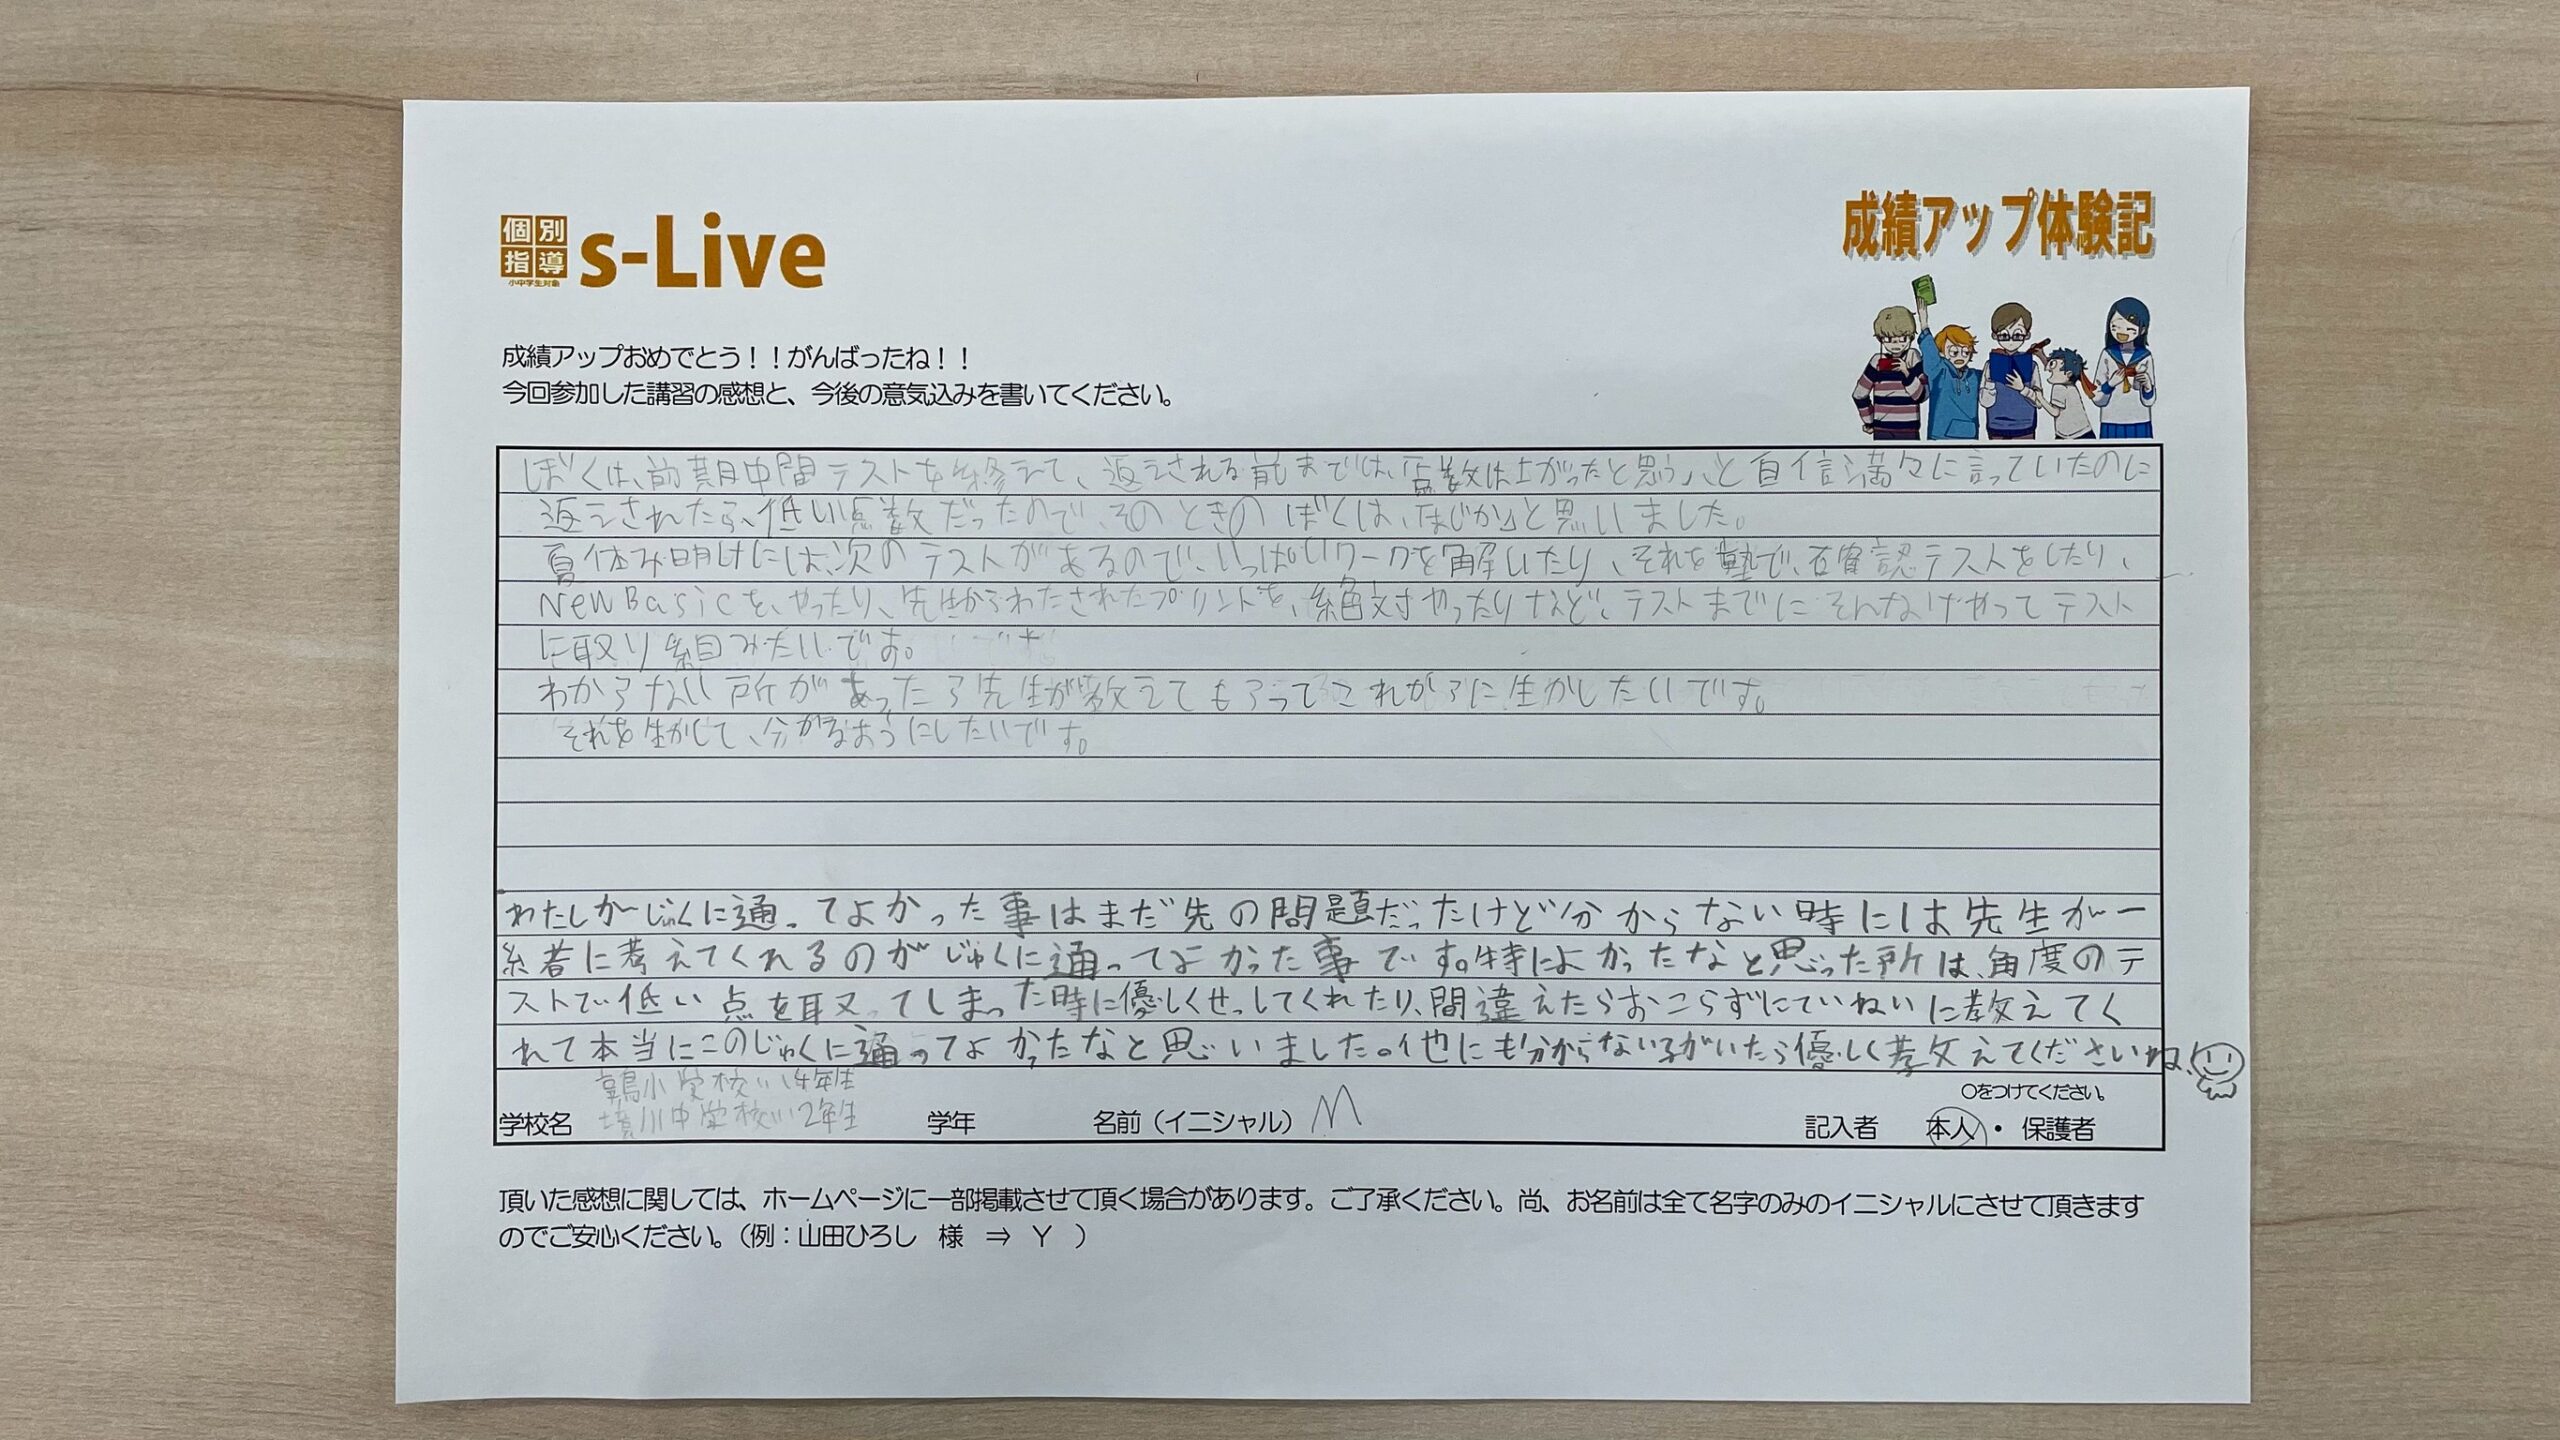 個別指導 s-Live
小中学生対象
成績アップ体験記
成績アップおめでとう！！がんばったね！！
今回参加した講習の感想と、今後の意気込みを書いてください。
ぼくは、前期中間テストを終えて、返えされる前までは、「点数は上がったと思う」、と自信満々に言っていたのに
返えされたら、低い点数だったので、そのときのぼくは、「まじか」と思いました。
夏休み明けには、次のテストがあるので、いっぱいワークを解いたり、それを塾で、確認テストをしたり、
New Basicを、やったり、先生からわたされたプリントを、絶対やったりなど、テストまでにそんなけやってテスト
に取り組みたいです。
わからない所があったら先生が教えてもらってこれからに生かしたいです。
それを生かして、分かるようにしたいです。
わたしがじゅくに通ってよかった事はまだ先の問題だったけど分からない時には先生が一
緒に考えてくれるのがじゅくに通ってよかった事です。特によかったなと思った所は、角度のテ
ストで低い点を取ってしまった時に優しくせっしてくれたり、間違えたらおこらずにていねいに教えてく
れて本当にこのじゅくに通ってよかったなと思いました。他にも分からない子がいたら優しく教えてくださいね!
小学校 4年生
〇をつけてください。
学校名 境川中学校 2年生 学年 名前（イニシャル） M 記入者 本人・保護者
頂いた感想に関しては、ホームページに一部掲載させて頂く場合があります。ご了承ください。尚、お名前は全て名字のみのイニシャルにさせて頂きます
のでご安心ください。（例：山田ひろし 様 ⇒ Y ）